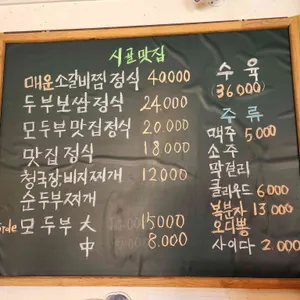 시골맛집
매운소갈비찜정식 40000
두부보쌈정식 24.000
모두부맛집정식 20.000
맛집정식 18000
청국장비지찌개 12000
순두부찌개
side 모두부 大 15000
中 8.000
수육
(36000)
주류
맥주 5000
소주
막걸리
클라우드 6000
복분자 13000
오디뽕
사이다 2.000